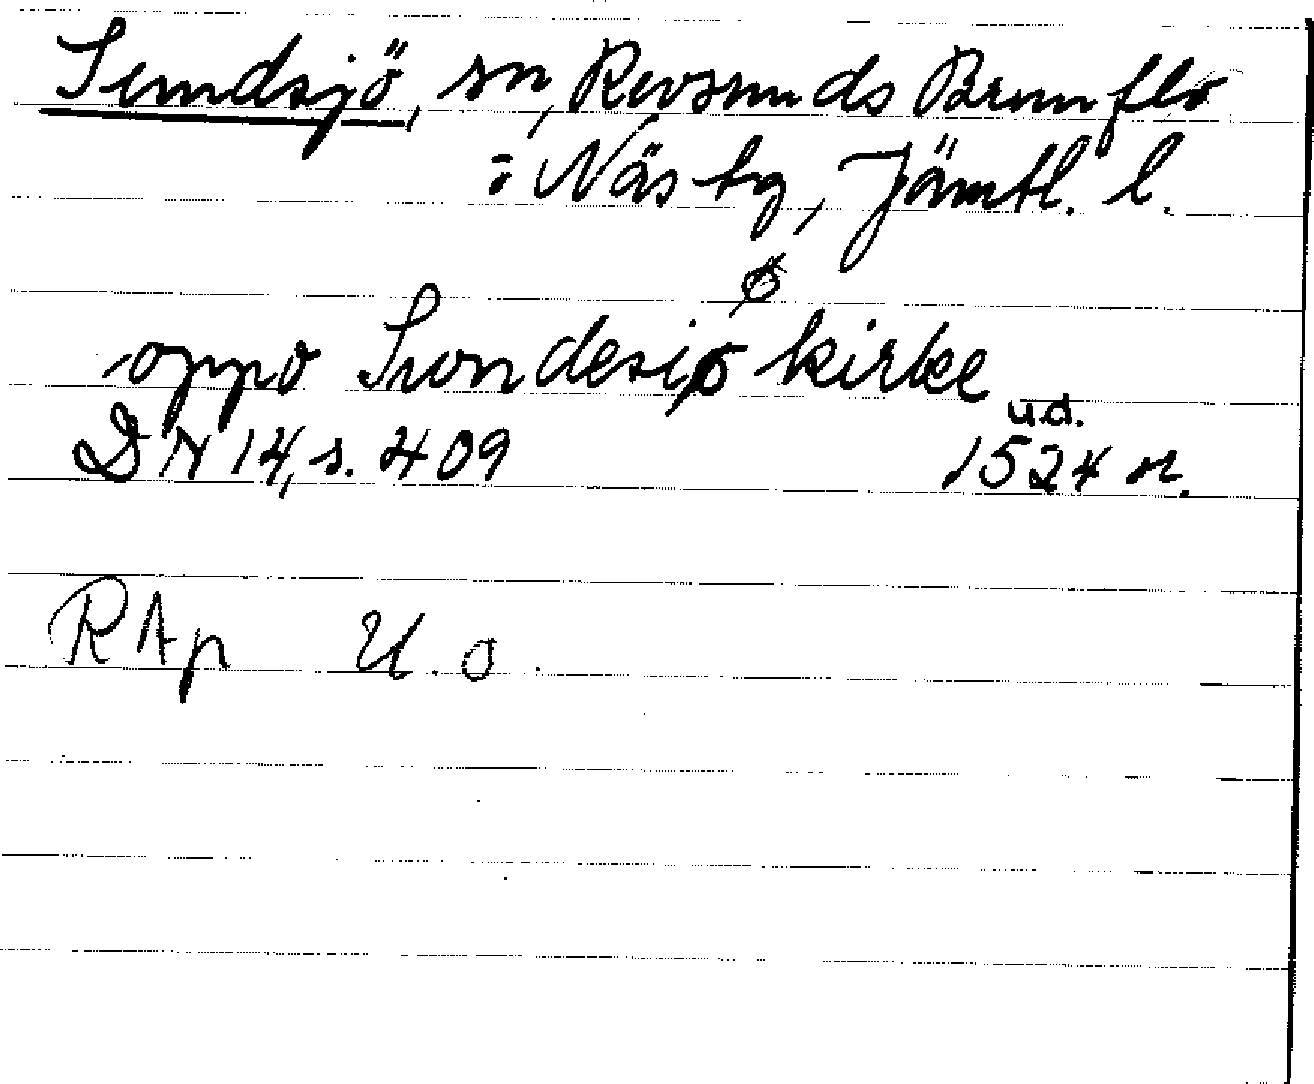 Sundsjö, sn, Revsunds Brunflo
: Näs tg, Jämtl. l.
ø
oppo Swndesiø kirke
DN 14, s. 409 u.d. 1524 or.
RAp U. o.